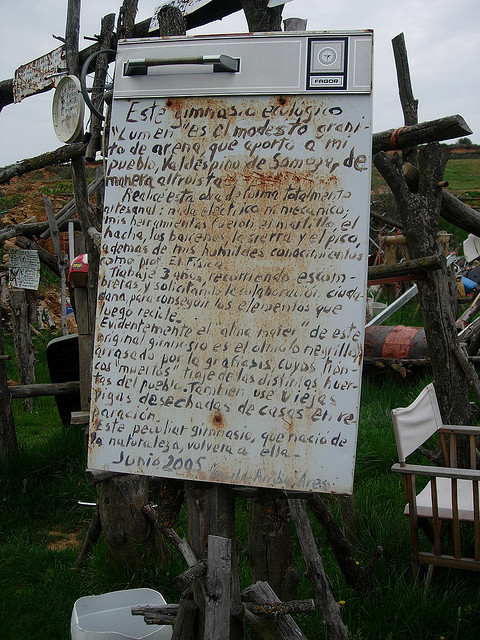 FAGOR
Este gimnasio ecológico
"Lumen" es el modesto grani
to de arena que aporto a mi
pueblo, Valdespino de Somoza, de
manera altruista
Realicé esta obra de forma totalmente
artesanal: nada eléctrico ni mecánico;
mis herramientas fueron: el martillo, el
hacha, los barrenos, la sierra y el pico,
además de mis humildes conocimientos
como prof. E. Física
Trabajé 3 años recorriendo escom-
breras y solicitando la colaboración ciuda-
dana para conseguir los elementos que
luego reciclé.
Evidentemente el "alma mater" de este
original gimnasio es el olmo o negrillo
arrasado por la grafiosis, cuyos tron-
cos "muertos" traje de las distintas huer-
tas del pueblo. También usé viejas
vigas desechadas de casas en re
paración.
Este peculiar gimnasio, que nació de
la naturaleza, volverá a ella-
Junio 2005